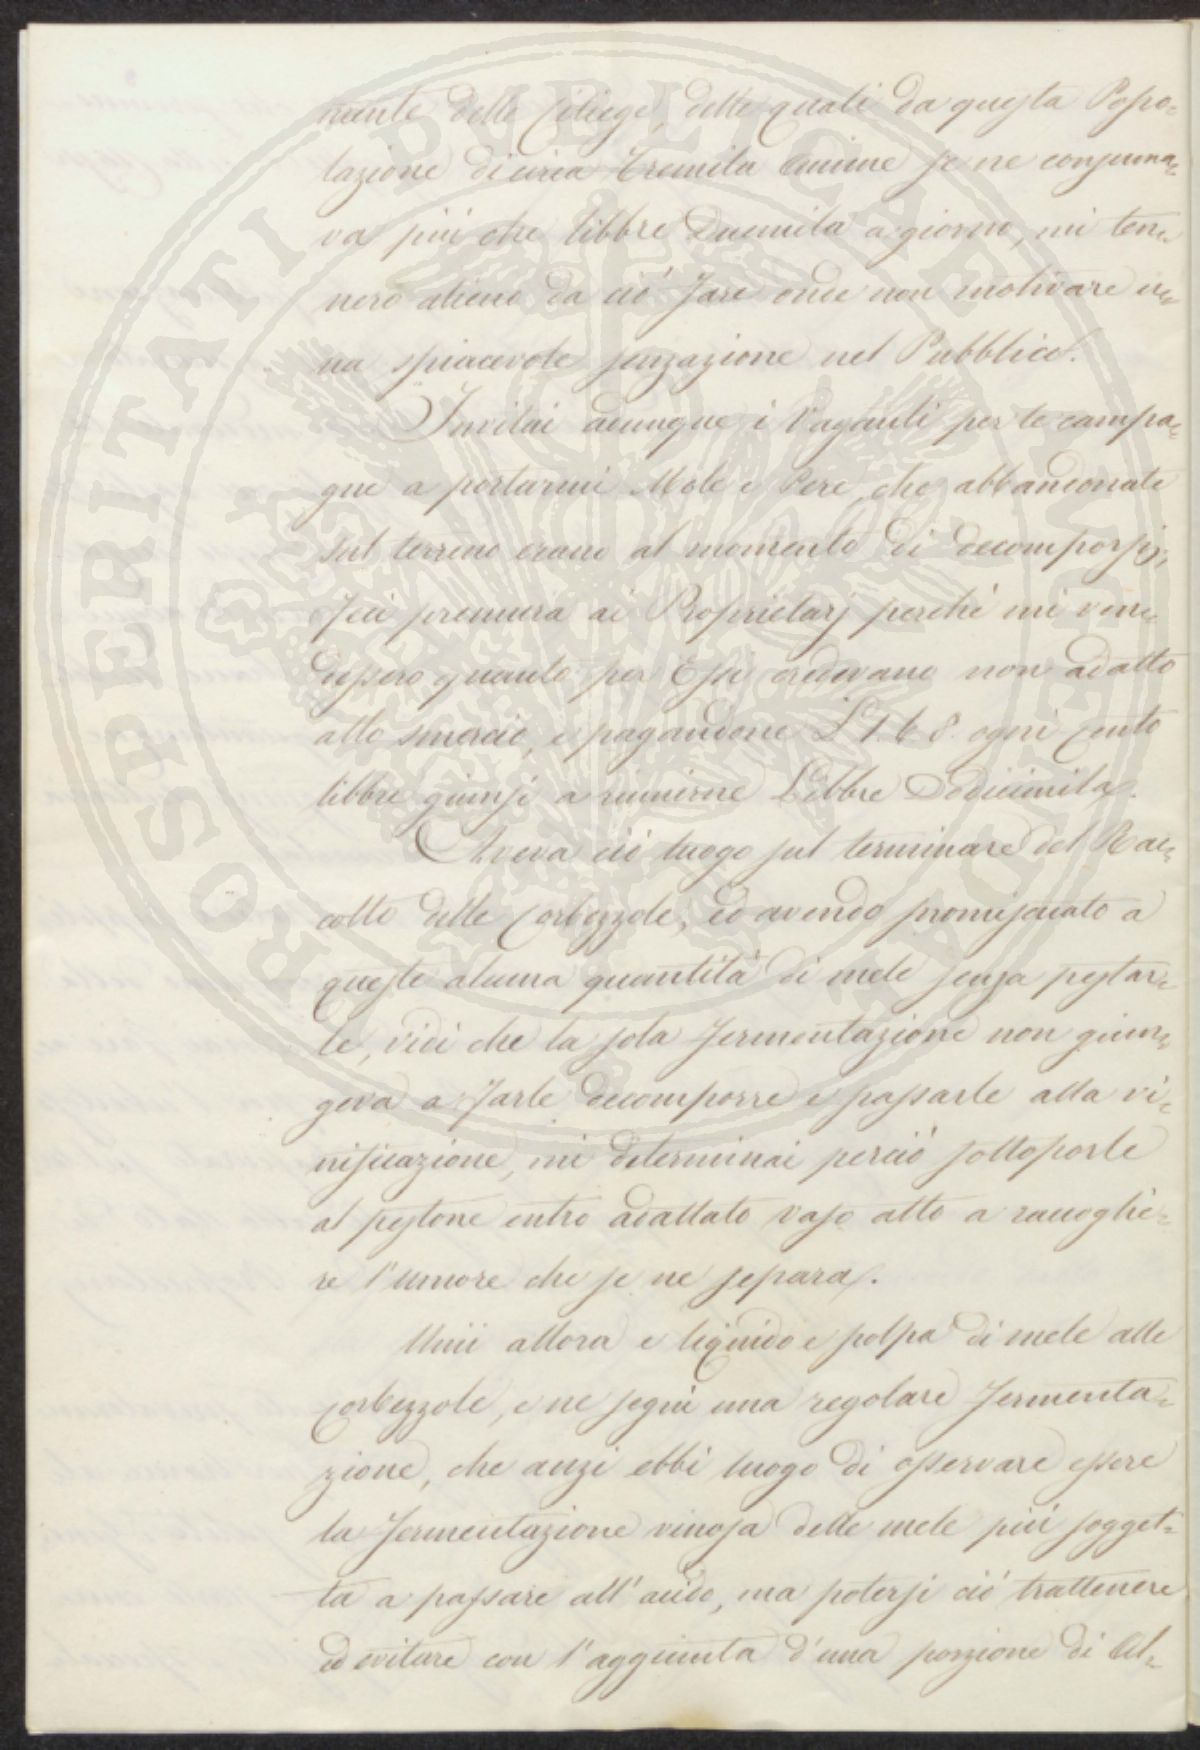 nante delle Ciliege, delle quali da questa Popo=
lazione di circa Tremila Anime se ne consuma=
va più che libbre Duemila a giorno, mi ten=
nero alieno da ciò fare onde non motivare u=
na spiacevole senzazione nel Pubblico.
Invitai adunque i Vaganti per le campa=
gne a portarmi Mele e Pere, che abbandonate
sul terreno erano al momento di decomporsi;
feci premura ai Proprietarj perchè mi ven=
dessero quanto per Essi credevano non adatto
allo smercio, e pagandone £ 1. 6. 8. ogni cento
libbre giunsi a riunirne Libbre Dodicimila.
Aveva ciò luogo sul terminare del Rac=
colto delle Corbezzole, ed avendo promiscuato a
queste alcuna quantità di mele senza pestar=
le, vidi che la sola fermentazione non giun=
geva a farle decomporre e passarle alla vi=
nificazione, mi determinai perciò sottoporle
al pestone entro adattato vaso atto a raccoglie=
re l'umore che se ne separa.
Unii allora e liquido e polpa di mele alle
Corbezzole, e ne seguì una regolare fermenta=
zione, che anzi ebbi luogo di osservare essere
la fermentazione vinosa delle mele più sogget=
ta a passare all'acido, ma potersi ciò trattenere
ed evitare con l'aggiunta d'una porzione di Al=
PROSPERITATI PUBLICAE AUGENDAE